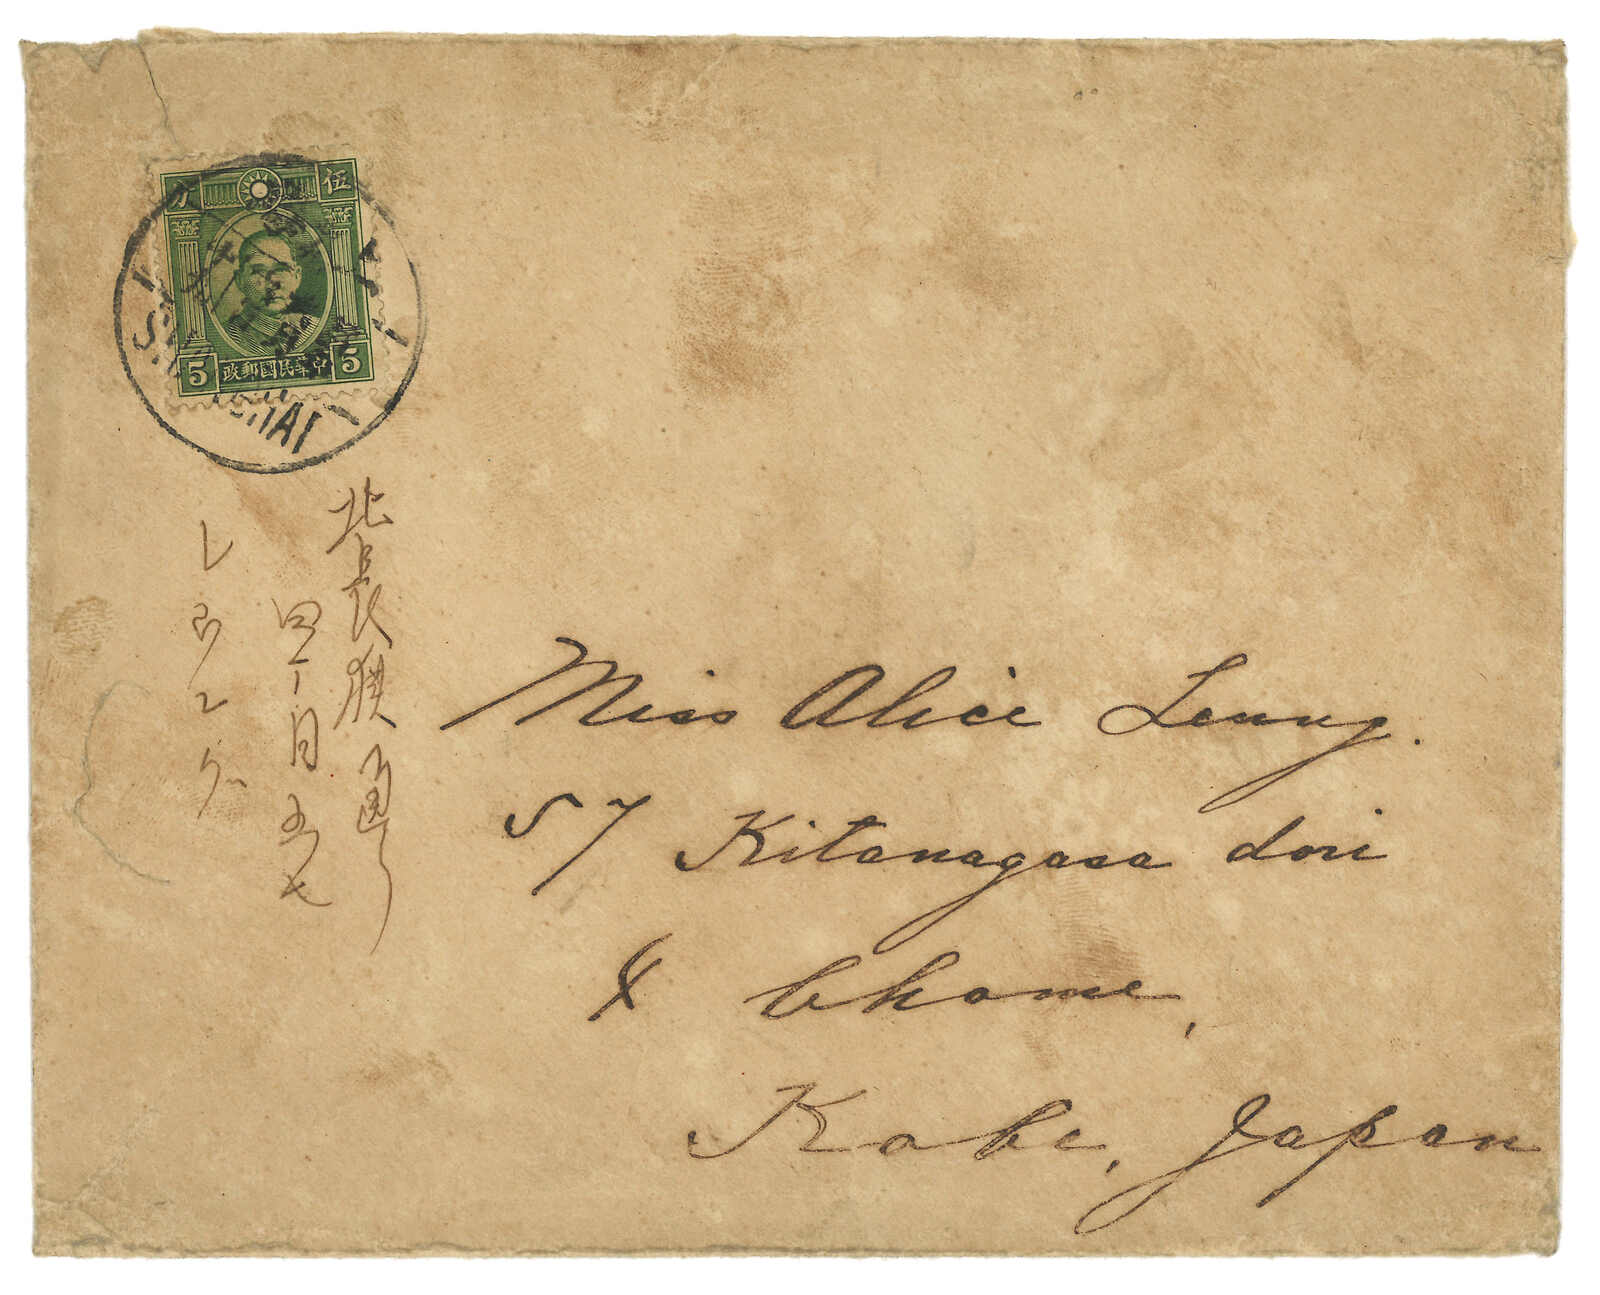 伍 分
5 中華民國郵政 5
SHANGHAI
北長狹通リ
四丁目五七
レウング
Miss Alice Leung.
57 Kitanagasa dori
4 Chome,
Kobe, Japan